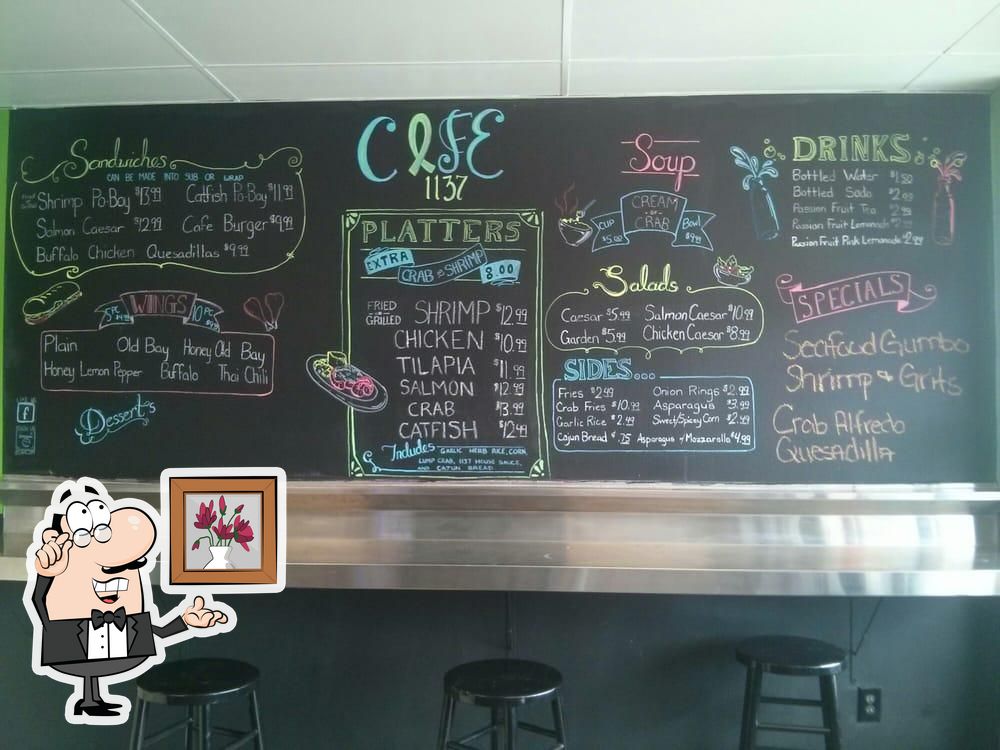 Sandwiches
CAN BE MADE INTO SUB OR WRAP
Shrimp Po-Boy $13.99 Catfish Po-Boy $11.99
Salmon Caesar $12.99 Cafe Burger $9.99
Buffalo Chicken Quesadillas $9.99
5PC WINGS 10PC
Plain Old Bay Honey Old Bay
Honey Lemon Pepper Buffalo Thai Chili
Desserts
CAFE
1137
PLATTERS
EXTRA CRAB or SHRIMP 8.00
FRIED or GRILLED
SHRIMP $12.99
CHICKEN $10.99
TILAPIA $11.99
SALMON $12.99
CRAB $13.99
CATFISH $12.49
Includes GARLIC HERB RICE, CORN,
LUMP CRAB, 1137 HOUSE SAUCE,
AND CAJUN BREAD
Soup
CREAM
OF
CRAB
CUP $5.00
Bowl $9.99
Salads
Caesar $5.99 Salmon Caesar $10.99
Garden $5.99 Chicken Caesar $8.99
SIDES...
Fries $2.49 Onion Rings $2.99
Crab Fries $10.99 Asparagus $3.99
Garlic Rice $2.49 Sweet/Spicy Corn $2.49
Cajun Bread $.75 Asparagus w/ Mozzarella $4.99
DRINKS
Bottled Water $1.50
Bottled Soda $2.09
Passion Fruit Tea
Passion Fruit Lemonade
Passion Fruit Pink Lemonade $2.99
SPECIALS
Seafood Gumbo
Shrimp & Grits
Crab Alfredo
Quesadilla